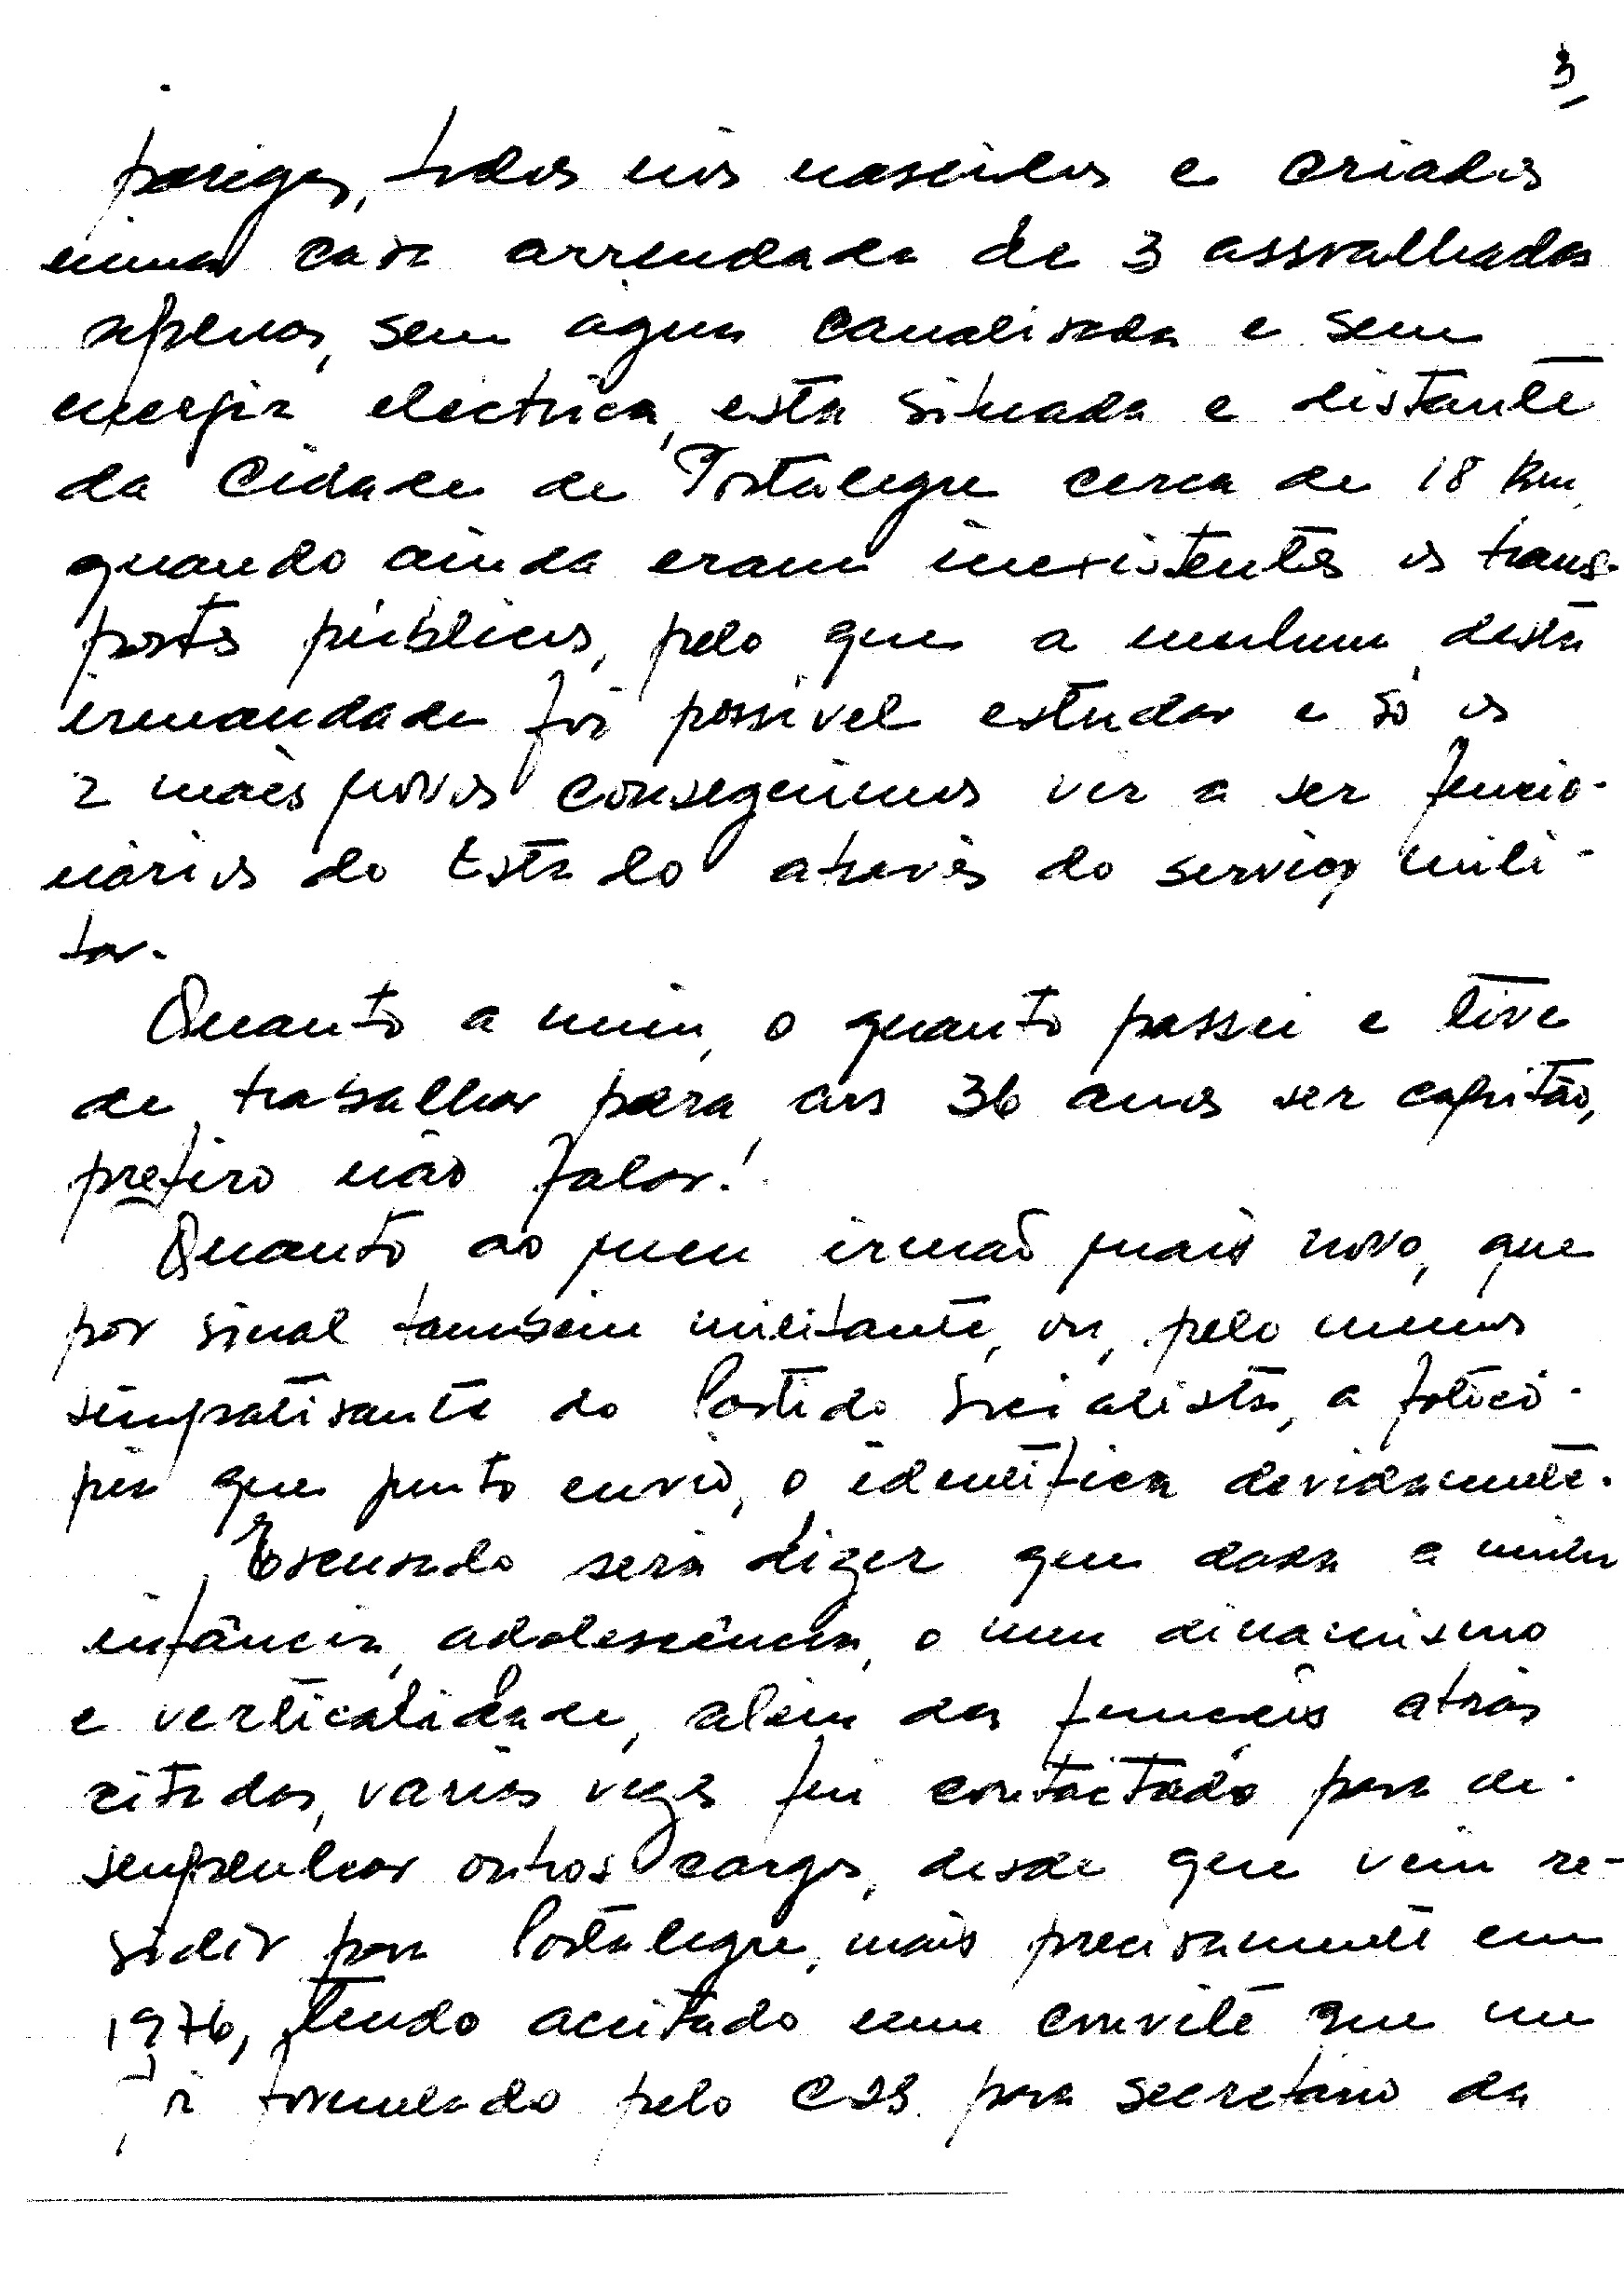 3
parigas, todos nós nascidos e criados
numa casa arrendada de 3 assoalhadas
apenas, sem água canalisada e sem
energia electrica, esta situada e distante
da Cidade de Portalegre cerca de 18 km,
quando ainda eram inexistentes os trans-
portes públicos, pelo que a nenhum desta
irmandade foi possivel estudar e só os
2 mais novos conseguimos vir a ser funcio-
nários do Estado através do serviço mili-
tar.
Quanto a mim, o quanto passei e tive
de trabalhar para aos 36 anos ser capitão,
prefiro não falar!
Quanto ao meu irmão mais novo, que
por sinal também militante, ou, pelo menos
simpatisante do Partido Socialista, a fotocó-
pia que junto envio, o identifica devidamente.
Escusado será dizer que dada a minha
infância, adolescência, o meu dinamismo
e verticalidade, além das funções atrás
citadas, várias vezes fui contactado para de-
sempenhar outros cargos, desde que vim re-
sidir para Portalegre, mais precisamente em
1976, tendo aceitado um convite que me
formulado pelo CDS para secretário da